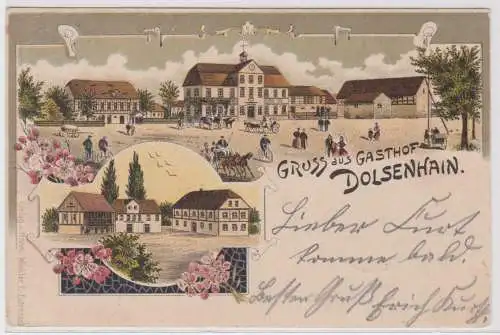 GRUSS AUS GASTHOF
DOLSENHAIN.
Lieber Kurt
komme bald.
Bester Gruß Erich Kurth